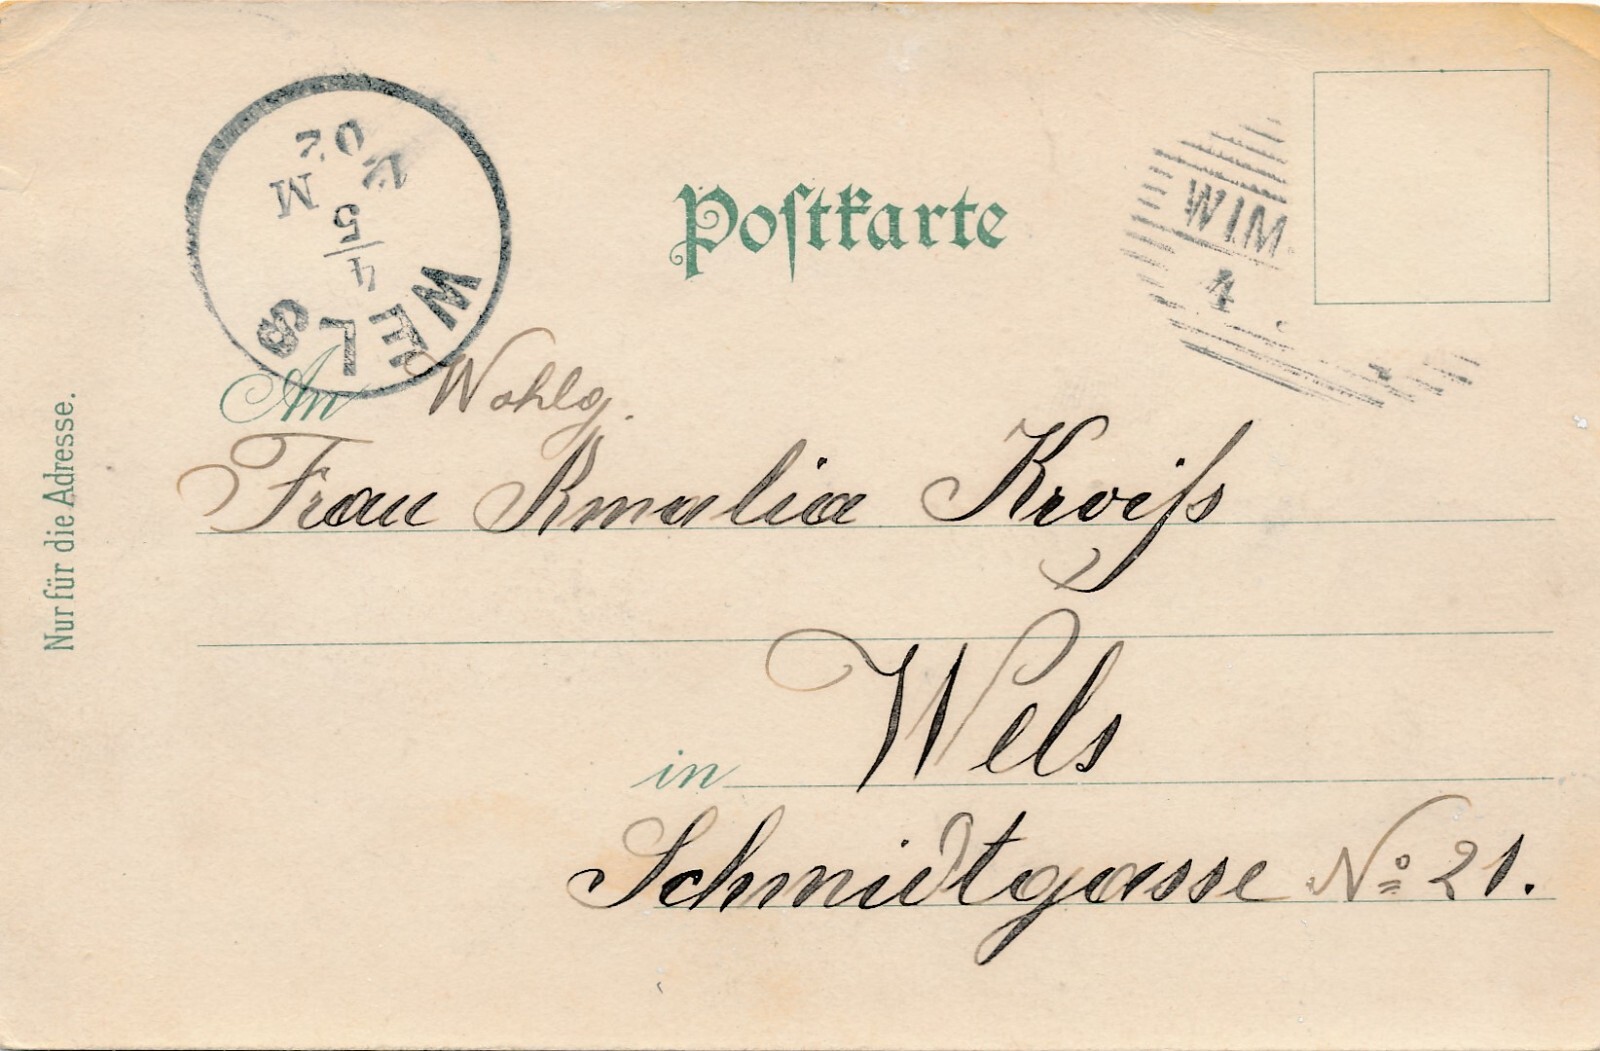 Postkarte
WELS
4
5
M
02
WIM
4
An Wohlg.
Frau Amalia Kroiſs
in Wels
Schmidtgasse No 21.
Nur für die Adresse.